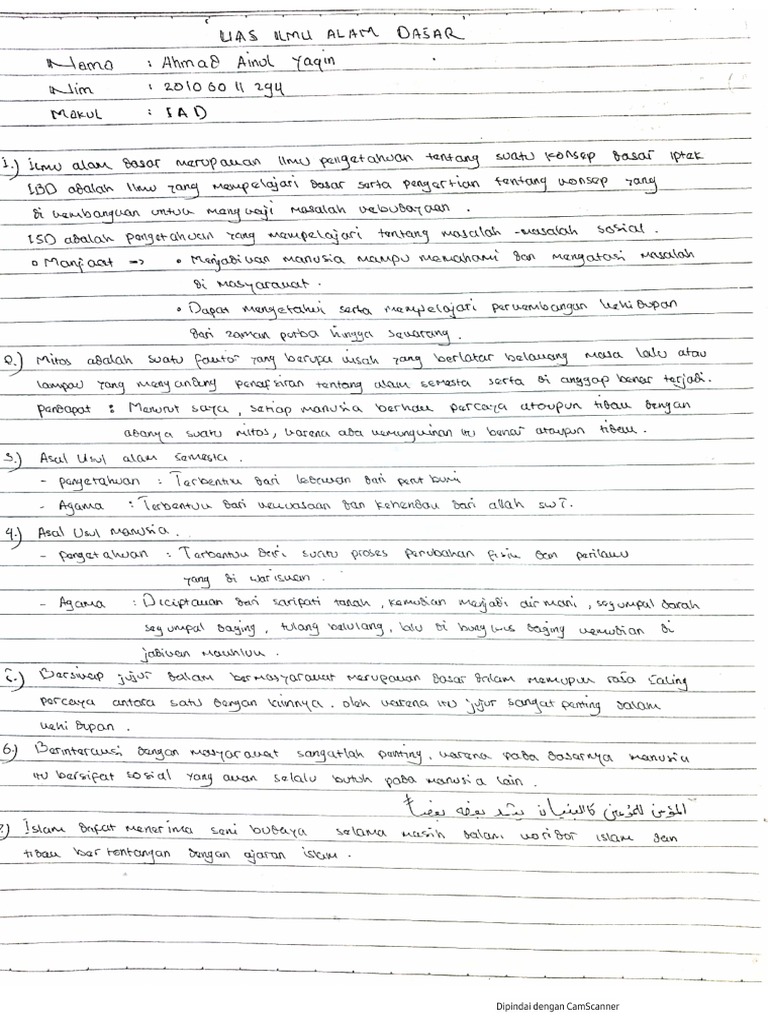 UAS ILMU ALAM DASAR
Nama : Ahmad Ainul Yaqin
Nim : 201060011294
Makul : IAD
1.) Ilmu alam dasar merupakan Ilmu pengetahuan tentang suatu konsep dasar iptek
IBD adalah Ilmu yang mempelajari dasar serta pengertian tentang konsep yang
di kembangkan untuk mengkaji masalah kebudayaan.
ISD adalah pengetahuan yang mempelajari tentang masalah-masalah sosial.
• Manfaat => • Menjadikan manusia mampu memahami dan mengatasi masalah
di masyarakat.
• Dapat mengetahui serta mempelajari perkembangan kehidupan
dari zaman purba hingga sekarang.
2.) Mitos adalah suatu faktor yang berupa kisah yang berlatar belakang masa lalu atau
lampau yang mengandung penafsiran tentang alam semesta serta di anggap benar terjadi.
pendapat : Menurut saya, setiap manusia berhak percaya ataupun tidak dengan
adanya suatu mitos, karena ada kemungkinan itu benar ataupun tidak.
3.) Asal Usul alam semesta.
- pengetahuan : Terbentuk dari ledakan dari perut bumi
- Agama : Terbentuk dari kekuasaan dan kehendak dari allah swT.
4.) Asal Usul manusia.
- pengetahuan : Terbentuk dari suatu proses perubahan fisik dan perilaku
yang di wariskan.
- Agama : Diciptakan dari saripati tanah, kemudian menjadi air mani, segumpal darah
segumpal daging, tulang belulang, lalu di bungkus daging kemudian di
jadikan makhluk.
5.) Bersikap jujur dalam bermasyarakat merupakan dasar dalam memupuk rasa saling
percaya antara satu dengan lainnya. oleh karena itu jujur sangat penting dalam
kehidupan.
6.) Berinteraksi dengan masyarakat sangatlah penting, karena pada dasarnya manusia
itu bersifat sosial yang akan selalu butuh pada manusia lain.
المؤمن للمؤمن كالبنيان يشد بعضه بعضا
7.) Islam dapat menerima seni budaya selama masih dalam koridor islam dan
tidak bertentangan dengan ajaran islam.
Dipindai dengan CamScanner